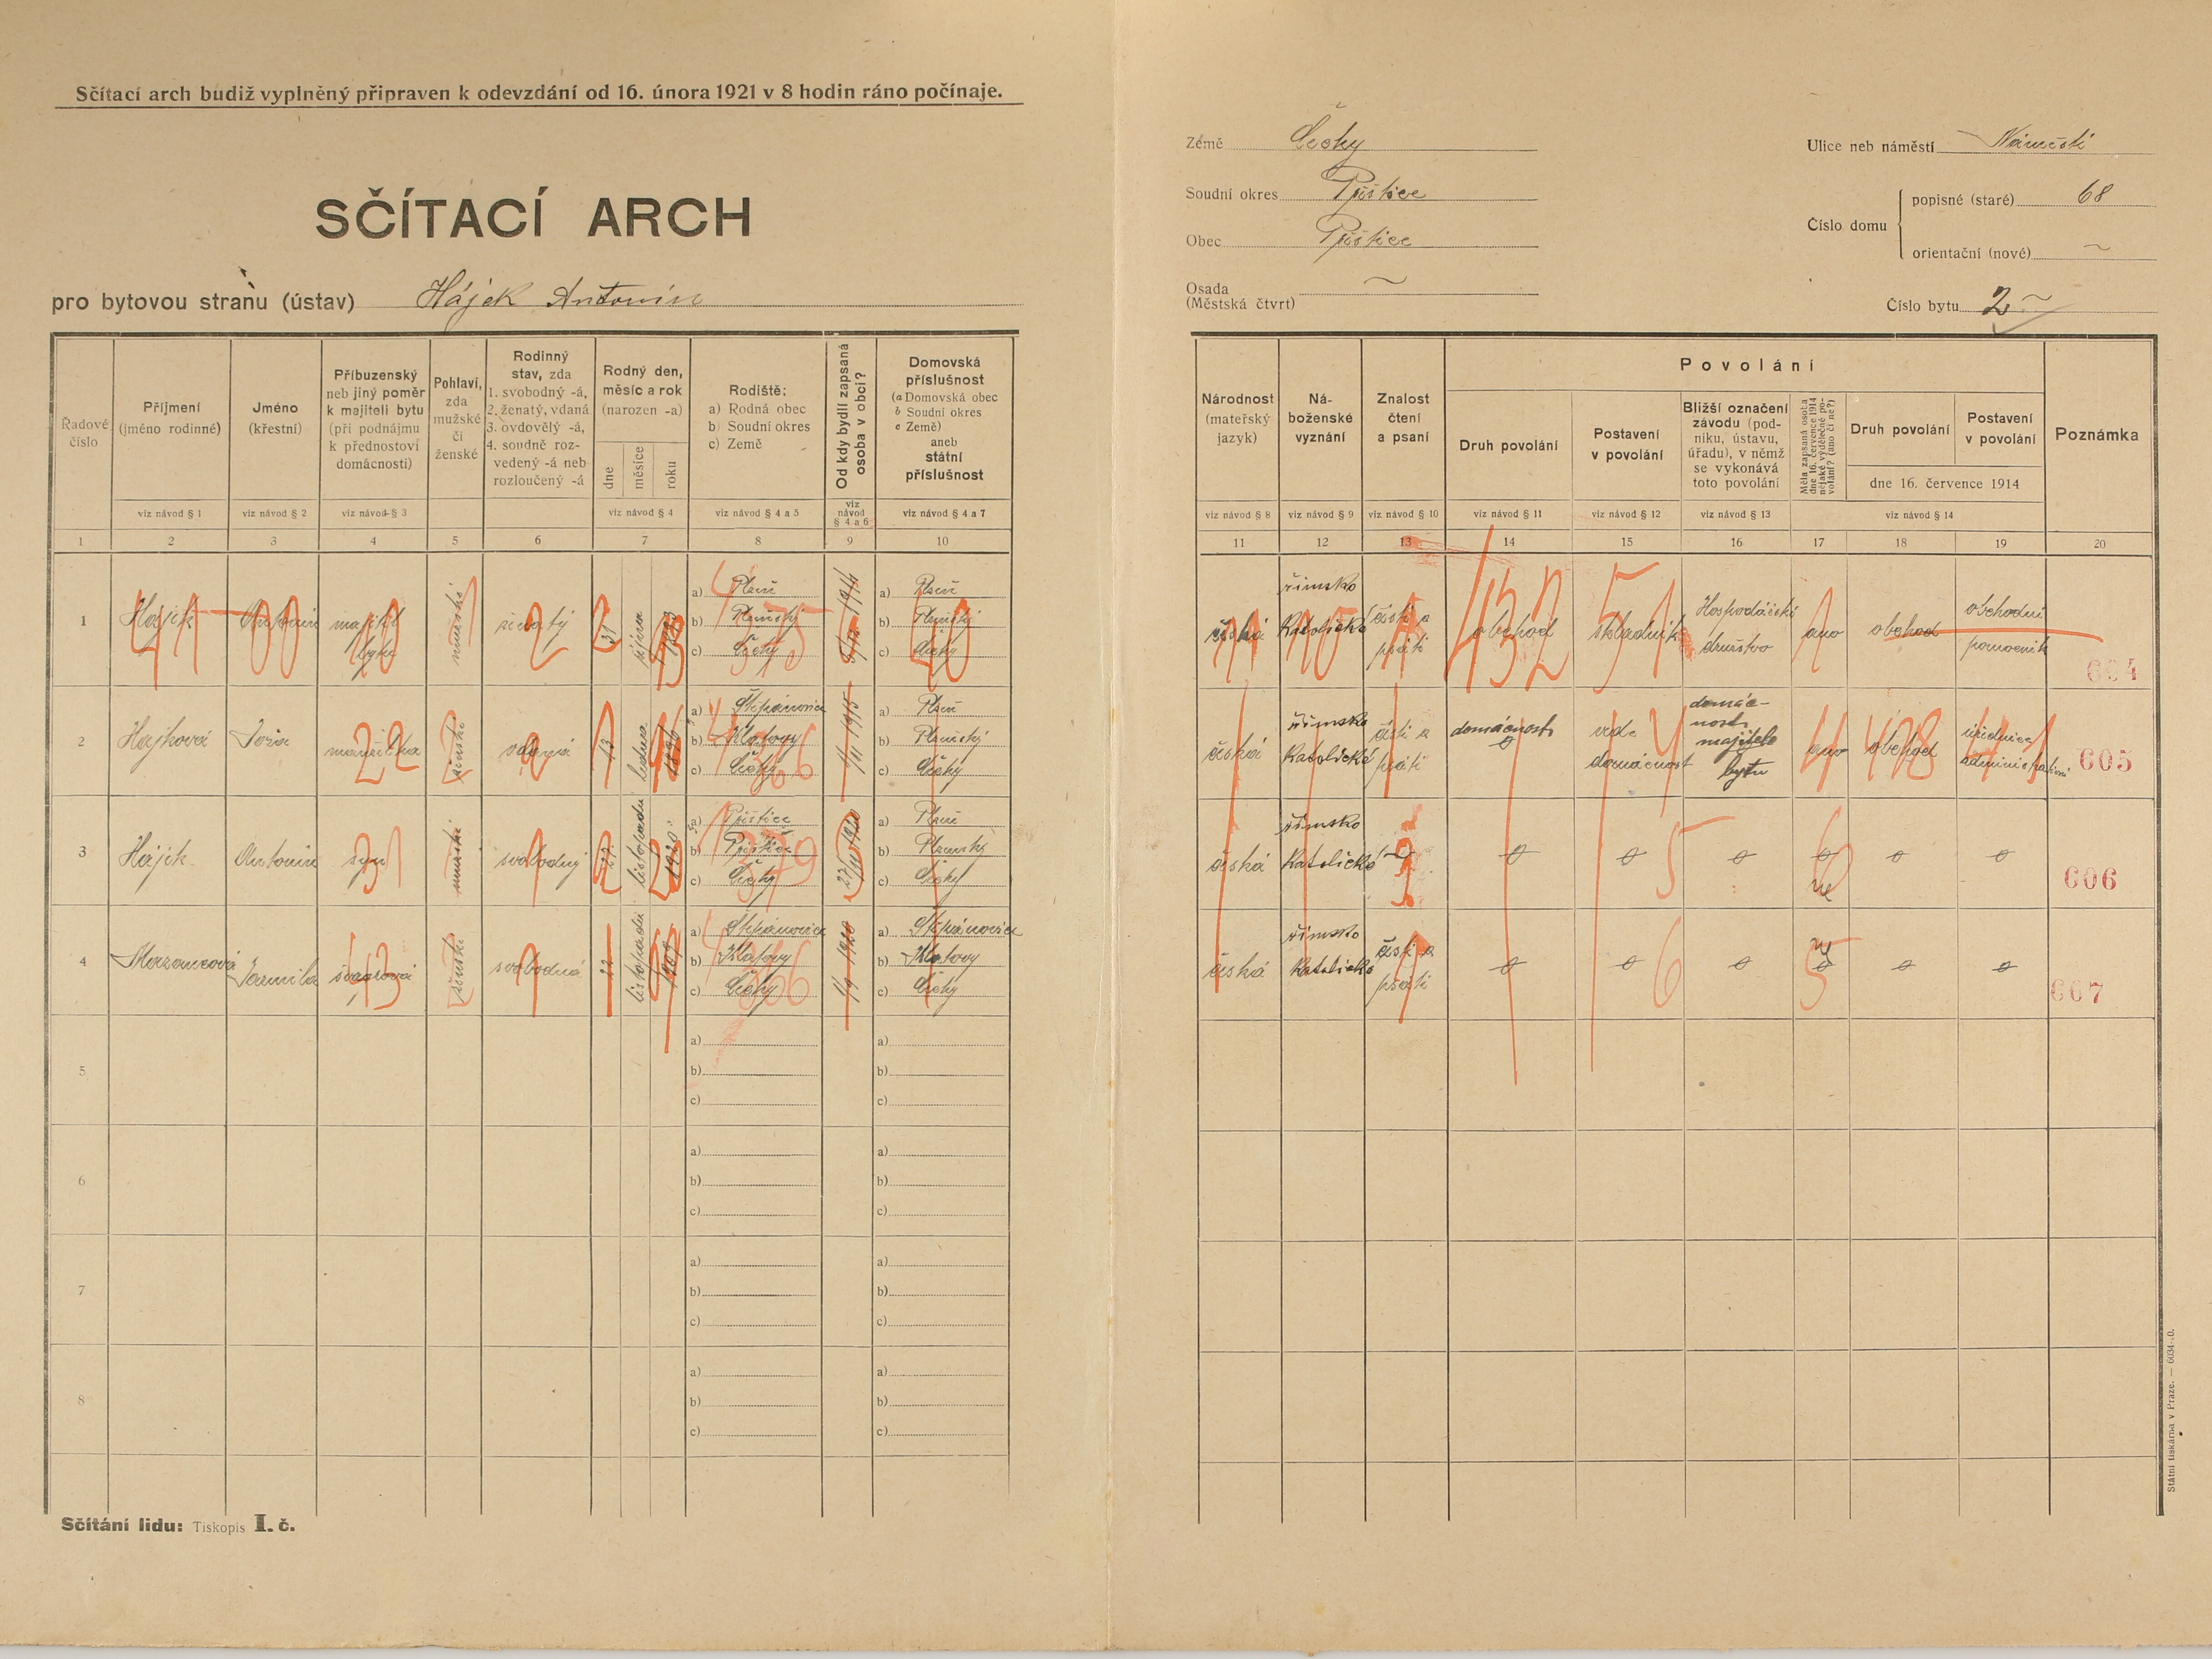 Sčítací arch budiž vyplněný připraven k odevzdání od 16. února 1921 v 8 hodin ráno počínaje.
SČÍTACÍ ARCH
pro bytovou stranu (ústav) Hájek Antonín
Země Čechy
Soudní okres Přeštice
Obec Přeštice
Osada
(Městská čtvrt) ~
Ulice neb náměstí Náměstí
Číslo domu
popisné (staré) 68
orientační (nové) ~
Číslo bytu 2
Řadové
číslo
Příjmení
(jméno rodinné)
Jméno
(křestní)
Příbuzenský
neb jiný poměr
k majiteli bytu
(při podnájmu
k přednostovi
domácnosti)
Pohlaví,
zda
mužské
či
ženské
Rodinný
stav, zda
1. svobodný -á,
2. ženatý, vdaná
3. ovdovělý -á,
4. soudně roz-
vedený -á neb
rozloučený -á
Rodný den,
měsíc a rok
(narozen -a)
dne
měsíce
roku
Rodiště:
a) Rodná obec
b) Soudní okres
c) Země
Od kdy bydlí zapsaná
osoba v obci?
Domovská
příslušnost
(a Domovská obec
b Soudní okres
c Země)
aneb
státní
příslušnost
viz návod § 1
viz návod § 2
viz návod § 3
viz návod § 4
viz návod § 4 a 5
viz
návod
§ 4 a 6
viz návod § 4 a 7
1 2 3 4 5 6 7 8 9 10
Národnost
(mateřský
jazyk)
Ná-
boženské
vyznání
Znalost
čtení
a psaní
Povolání
Druh povolání
Postavení
v povolání
Bližší označení
závodu (pod-
niku, ústavu,
úřadu), v němž
se vykonává
toto povolání
Měla zapsaná osoba
dne 16. července 1914
nějaké výdělečné po-
volání? (ano či ne?)
Druh povolání
Postavení
v povolání
dne 16. července 1914
Poznámka
viz návod § 8
viz návod § 9
viz návod § 10
viz návod § 11
viz návod § 12
viz návod § 13
viz návod § 14
11 12 13 14 15 16 17 18 19 20
1 Hájek Antonín majitel
bytu
mužské
ženatý
31 října
a) Plzeň
b) Plzeňský
c) Čechy
a) Plzeň
b) Plzeňský
c) Čechy
česká
římsko
katolické
čísti a
psáti
obchod
skladník
Hospodářské
družstvo
ano
obchod
obchodní
pomocník
604
2 Hájková
manželka
ženské
vdaná
13 ledna 1896
a) Štěpánovice
b) Klatovy
c) Čechy
1/11 1915
a) Plzeň
b) Plzeňský
c) Čechy
česká
římsko
katolické
čísti a
psáti
domácnost
vede
domácnost
domác-
nost
majitele
bytu
ano
obchod
úřednice
605
3 Hájek Antonín syn
mužské
svobodný
27. listopadu 1920
a) Přeštice
b) Přeštice
c) Čechy
27/11 1920
a) Plzeň
b) Plzeňský
c) Čechy
česká
římsko
katolické
ne
606
4 Jarmila švagrová
ženské
svobodná
listopadu
a) Štěpánovice
b) Klatovy
c) Čechy
1/9 1920
a) Štěpánovice
b) Klatovy
c) Čechy
česká
římsko
katolické
čísti a
psáti
ne
607
5
a)
b)
c)
a)
b)
c)
6
a)
b)
c)
a)
b)
c)
7
a)
b)
c)
a)
b)
c)
8
a)
b)
c)
a)
b)
c)
Sčítání lidu: Tiskopis I. č.